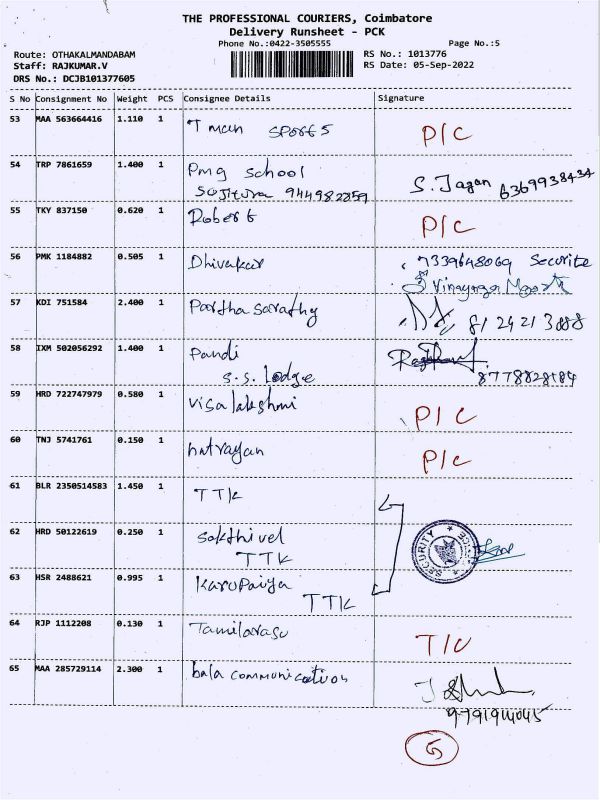 THE PROFESSIONAL COURIERS, Coimbatore
Delivery Runsheet - PCK
Phone No.:0422-3505555 Page No.:5
Route: OTHAKALMANDABAM RS No.: 1013776
Staff: RAJKUMAR.V RS Date: 05-Sep-2022
DRS No.: DCJB101377605
S No Consignment No Weight PCS Consignee Details Signature
53 MAA 563664416 1.110 1 T man sports P/C
54 TRP 7861659 1.400 1 Pmg school S. Jagan 6369938434
9449822859
55 TKY 837150 0.620 1 Robert P/C
56 PMK 1184882 0.505 1 Dhivakar 7339648069 Securite
Vinayaga
57 KDI 751584 2.400 1 Partha sarathy 8124213888
58 IXM 502056292 1.400 1 Pandi
S.S. Lodge
59 HRD 722747979 0.580 1 visalakshmi P/C
60 TNJ 5741761 0.150 1 natrayan P/C
61 BLR 2350514583 1.450 1 TTK
62 HRD 50122619 0.250 1 Sakthivel
TTK SECURITY
63 HSR 2488621 0.995 1 Karupaiya
TTK
64 RJP 1112208 0.130 1 Tamilarasu
65 MAA 285729114 2.300 1 bala communication
9791914045